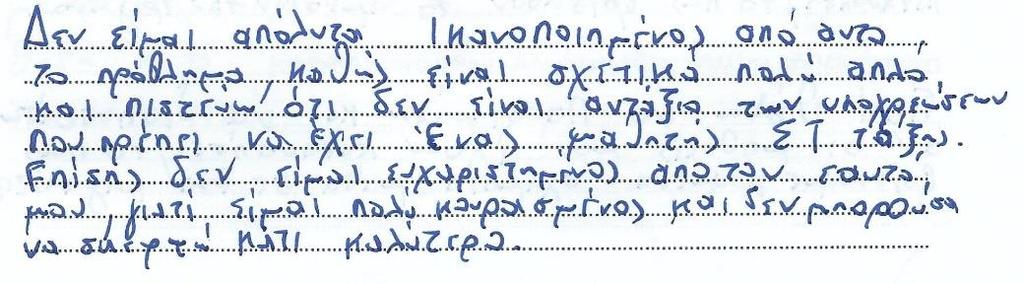 Δεν είμαι απόλυτα Ικανοποιημένος από αυτο
το πρόβλημα, καθώς είναι σχέτικά πολύ απλο
και πιστεύω ότι δεν είναι αντάξιο των υποχρεώσεων
που πρέπει να έχει ένας μαθητής ΣΤ τάξης.
Επίσης δεν είμαι ευχαριστημένος απο τον εαυτό
μου, γιατί είμαι πολύ κουρασμένος και δεν μπορούσα
να σκεφτώ κάτι καλύτερο.